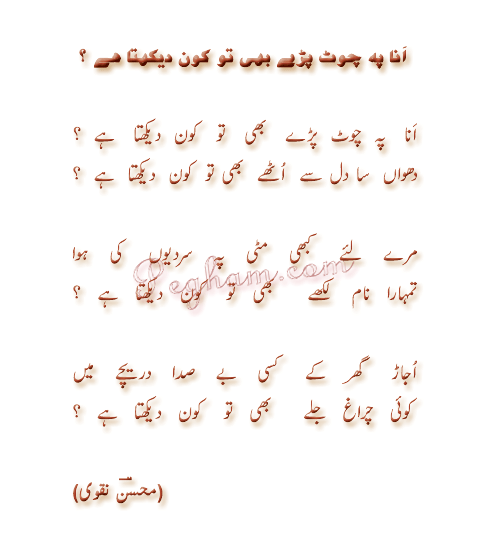 اَنا پہ چوٹ پڑے بھی تو کون دیکھتا ہے ؟
اَنا پہ چوٹ پڑے بھی تو کون دیکھتا ہے ؟
دھواں سا دل سے اُٹھے بھی تو کون دیکھتا ہے ؟
مرے لئے کبھی مٹی پہ سردیوں کی ہوا
Pegham.com
تمہارا نام لکھے بھی تو کون دیکھتا ہے ؟
اُجاڑ گھر کے کسی بے صدا دریچے میں
کوئی چراغ جلے بھی تو کون دیکھتا ہے ؟
(محسنؔ نقوی)